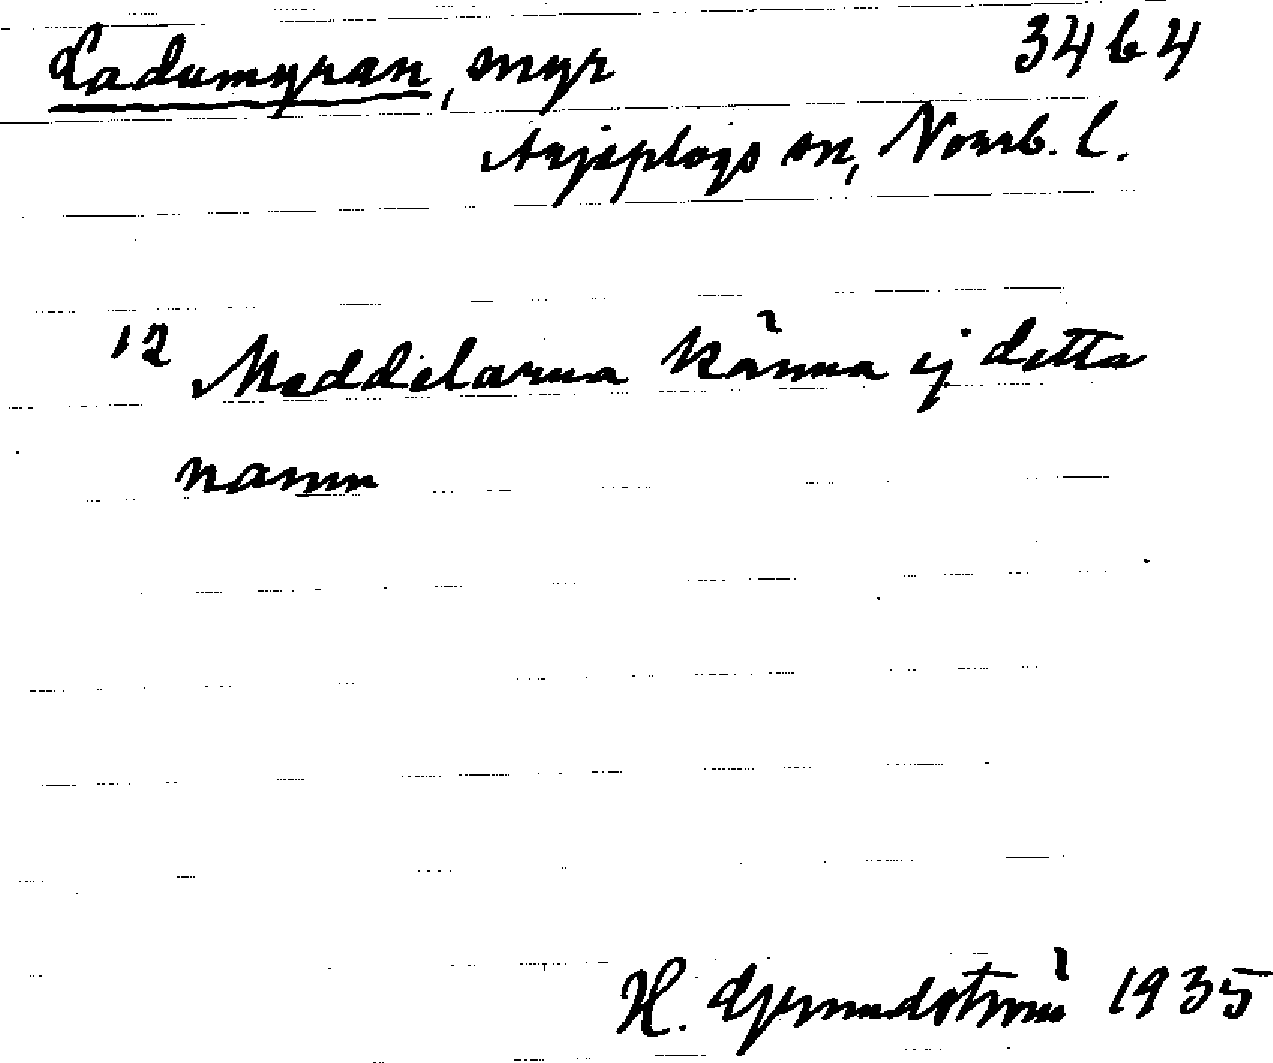 Ladumyran, myr 3464
Arjeplogs sn, Norrb. l.
12 Meddelarna känna ej detta
namn
H. Gjerundström 1935